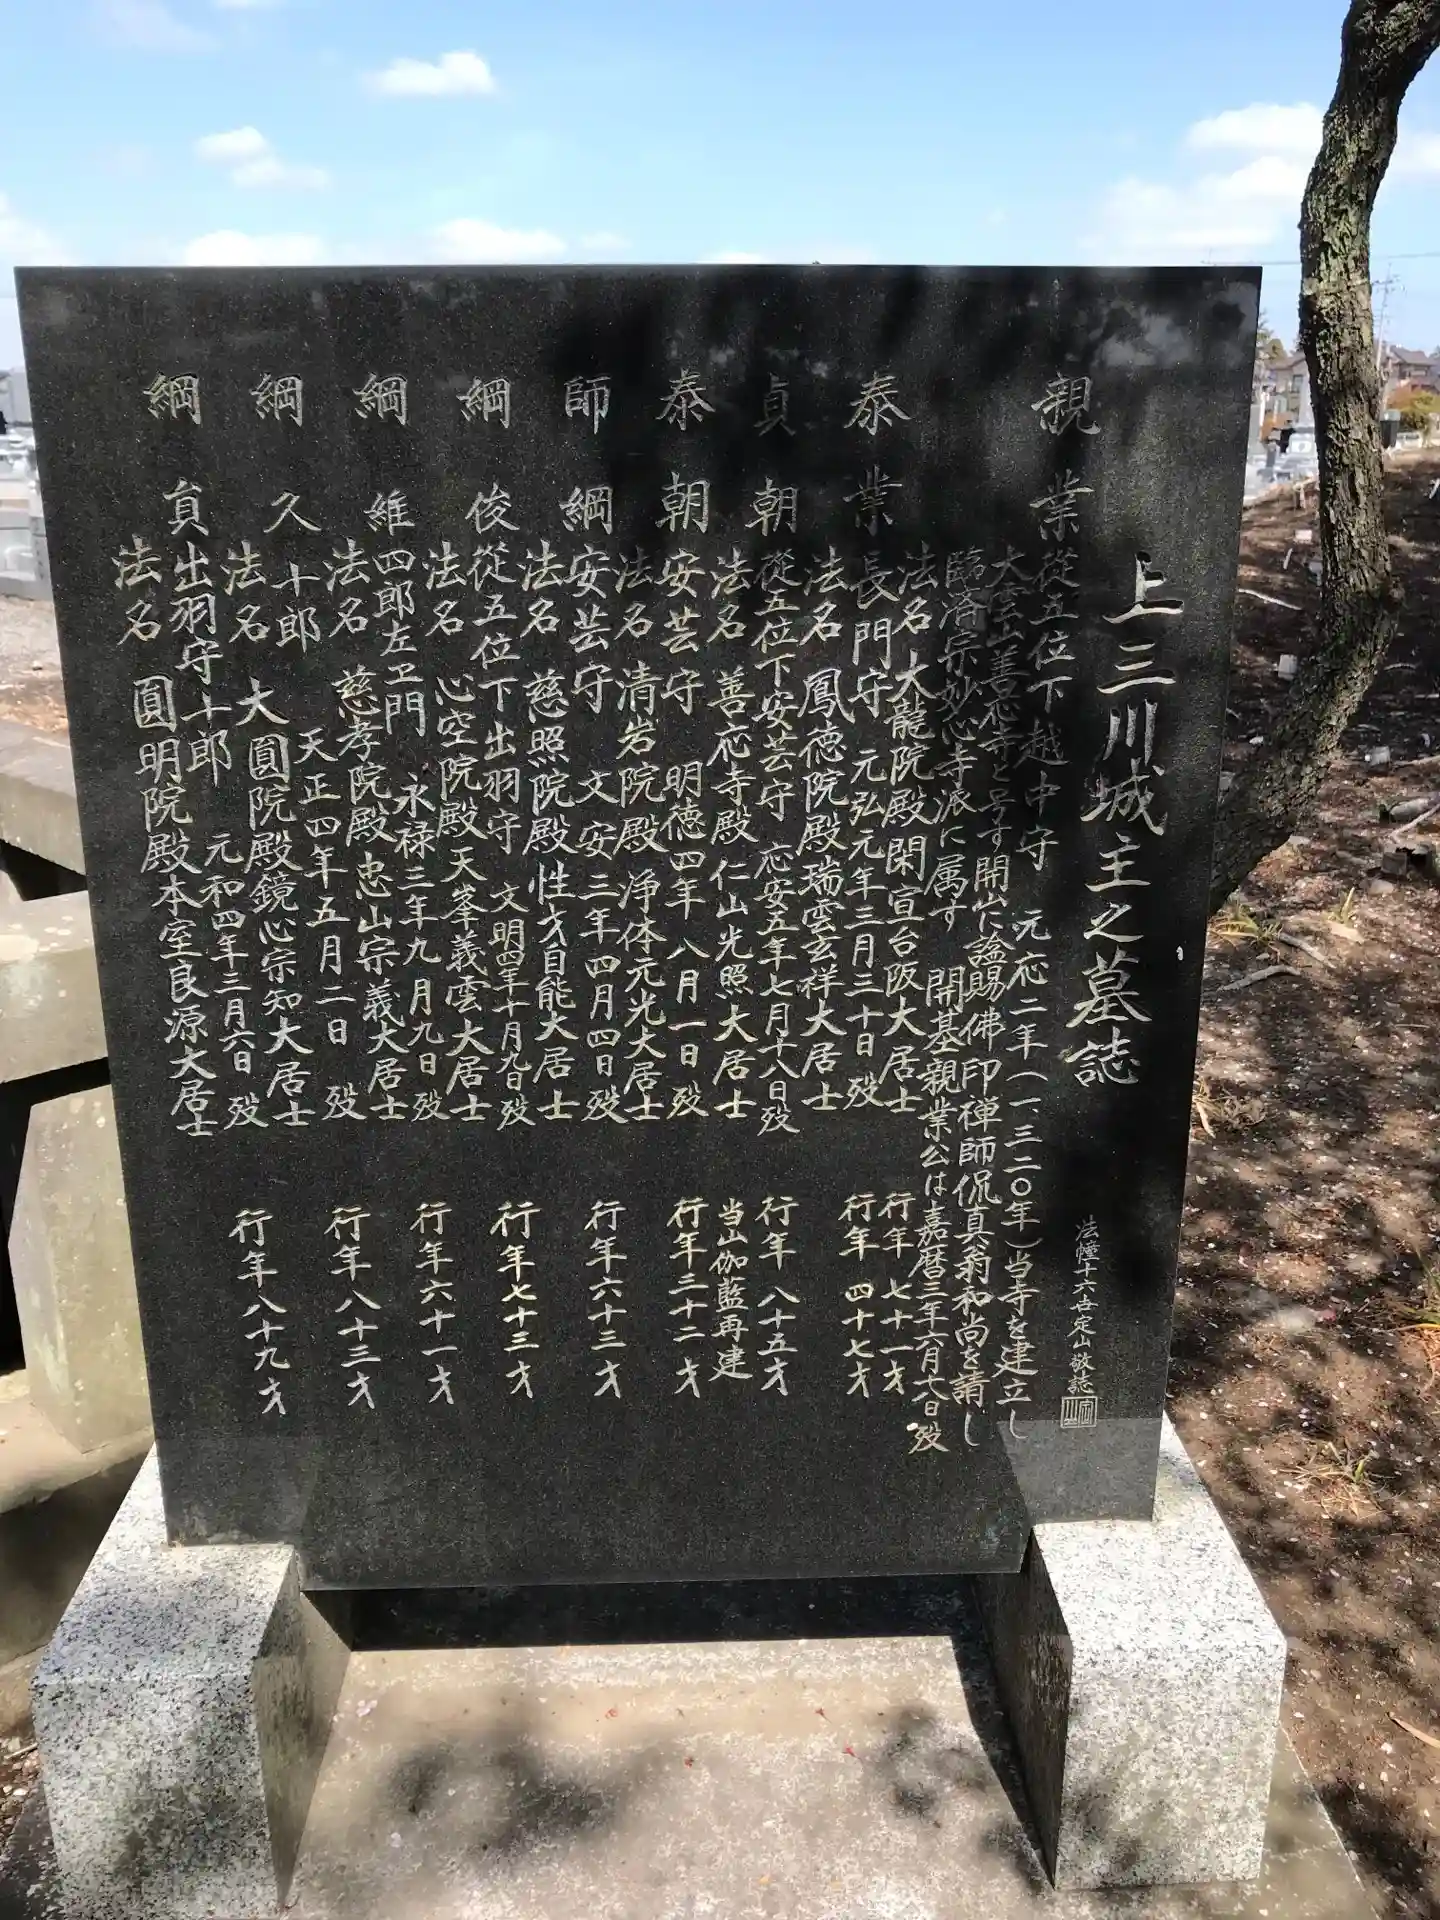 上三川城主之墓誌
法幢十六世定山敬誌
親業從五位下越中守 元応二年(一、三二〇年)当寺を建立し
大雲山善応寺と号す開山に諡賜佛印禅師侃真翁和尚を請し
臨済宗妙心寺派に属す 開基親業公は嘉暦三年六月十八日歿
法名大龍院殿閑宣台阪大居士 行年 七十一才
泰業長門守 元弘元年三月三十日歿 行年 四十七才
法名 鳳徳院殿瑞雲玄祥大居士
貞朝從五位下安芸守 応安五年七月十八日歿 行年 八十五才
法名 善応寺殿仁山光照大居士 当山伽藍再建
泰朝安芸守 明徳四年 八月一日歿 行年三十二才
法名清岩院殿浄体元光大居士
師綱安芸守 文安三年四月四日歿 行年六十三才
法名 慈照院殿性才自能大居士
綱俊從五位下出羽守 文明四年十月九日歿 行年七十三才
法名 心空院殿天峯義雲大居士
綱維四郎左ヱ門 永禄三年九月九日歿 行年六十一才
法名 慈孝院殿忠山宗義大居士
綱久十郎 天正四年五月二日 歿 行年八十三才
法名 大圓院殿鏡心宗知大居士
綱貞出羽守十郎 元和四年三月六日歿 行年八十九才
法名 圓明院殿本室良源大居士